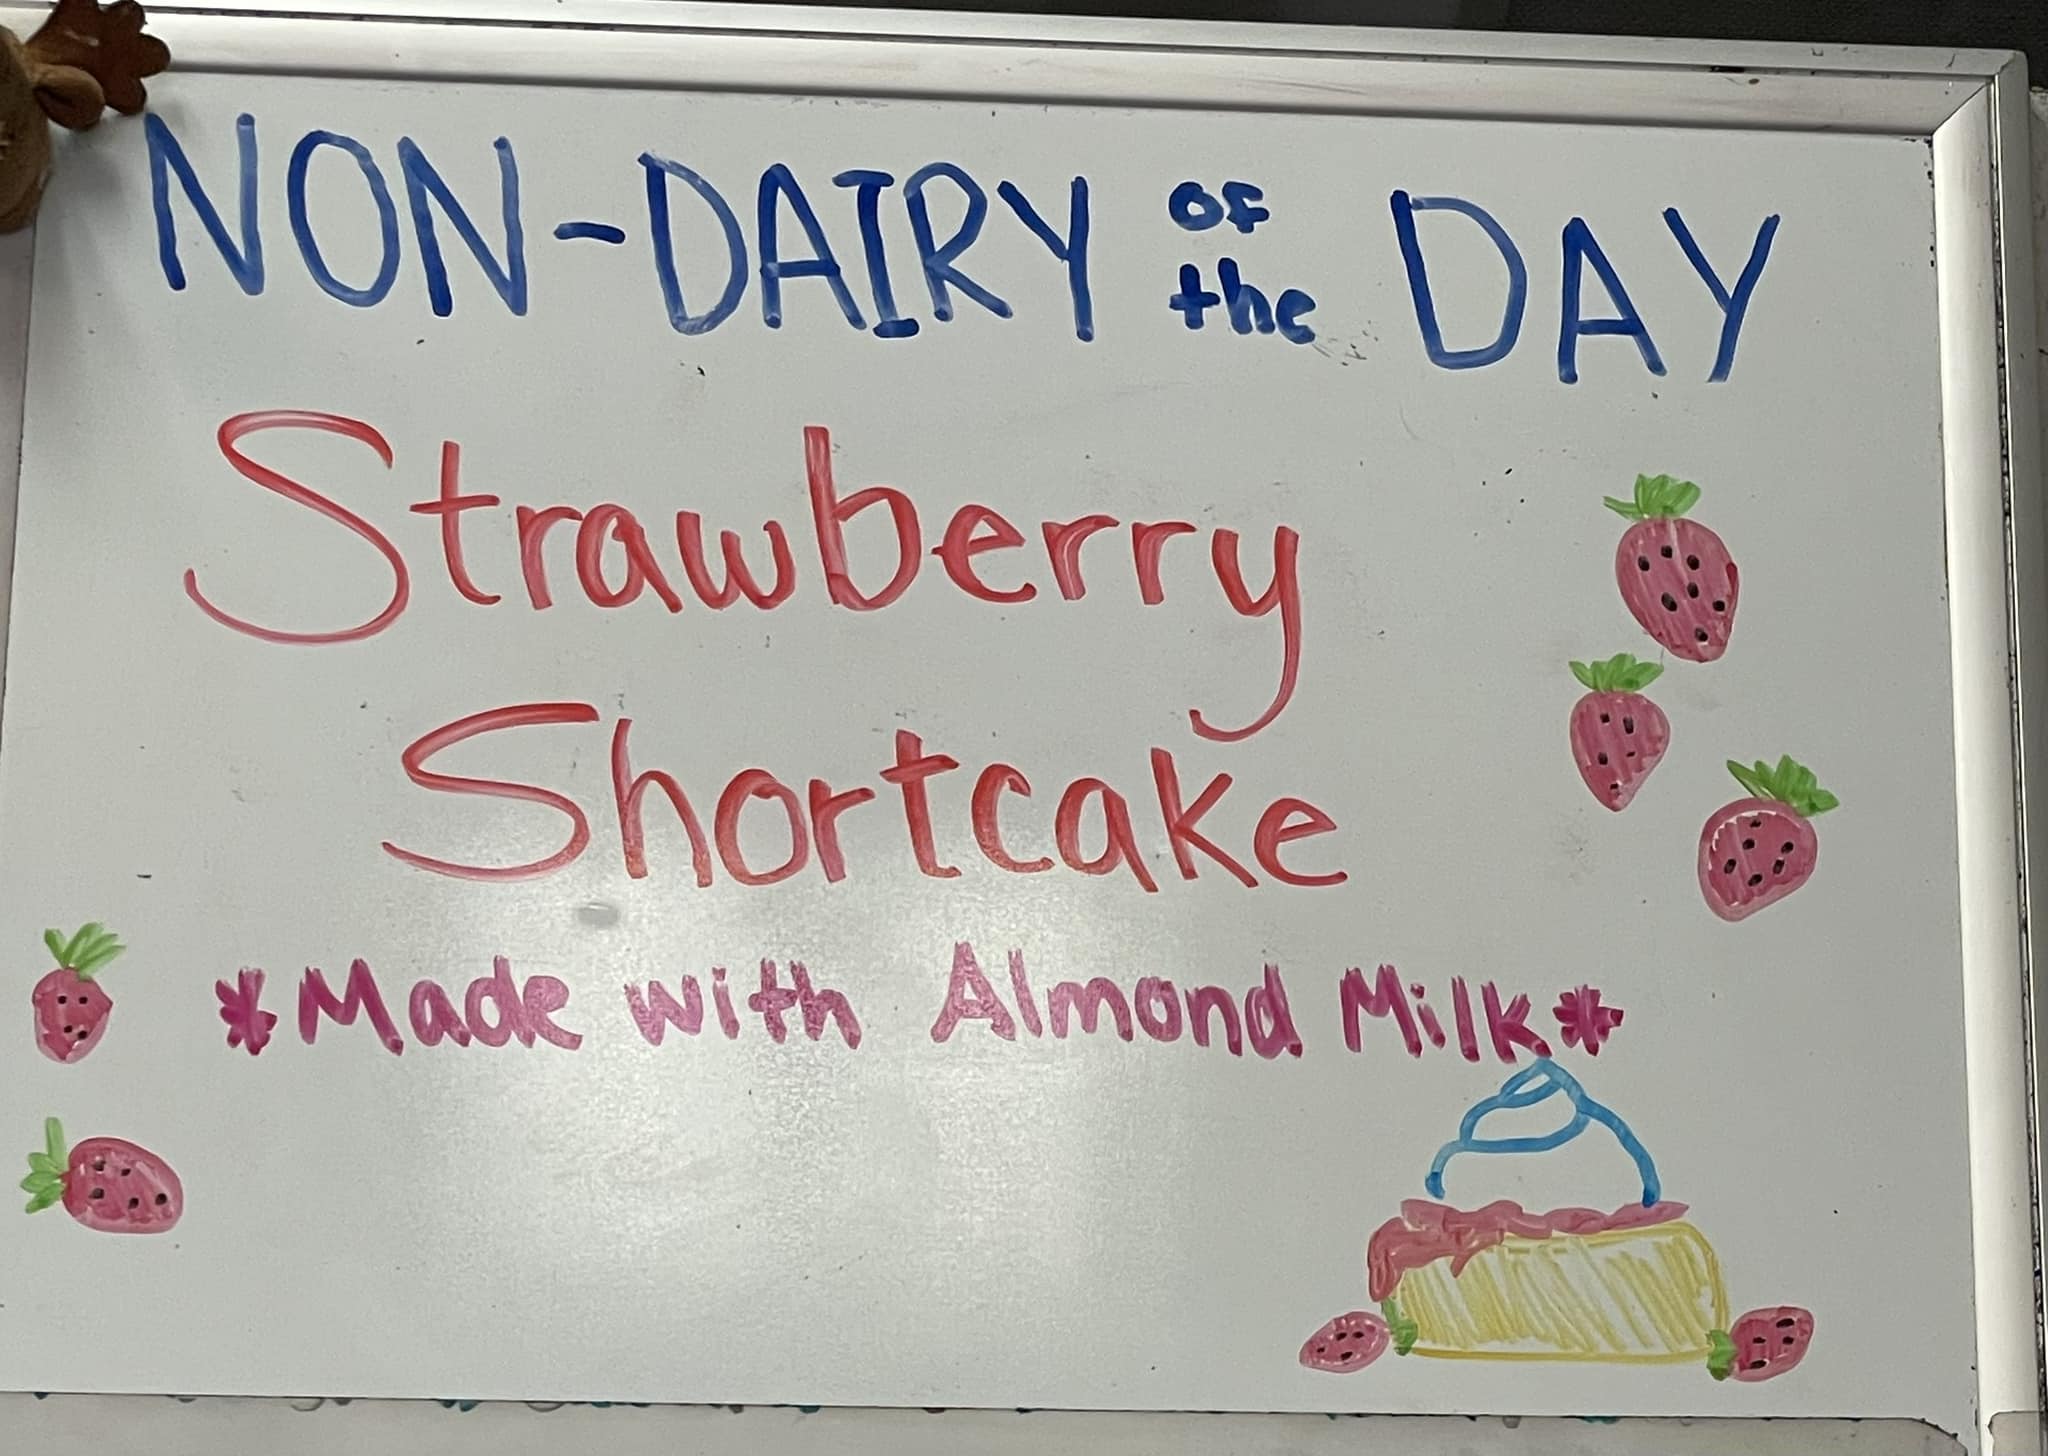 NON-DAIRY of the DAY
Strawberry
Shortcake
*Made with Almond Milk*